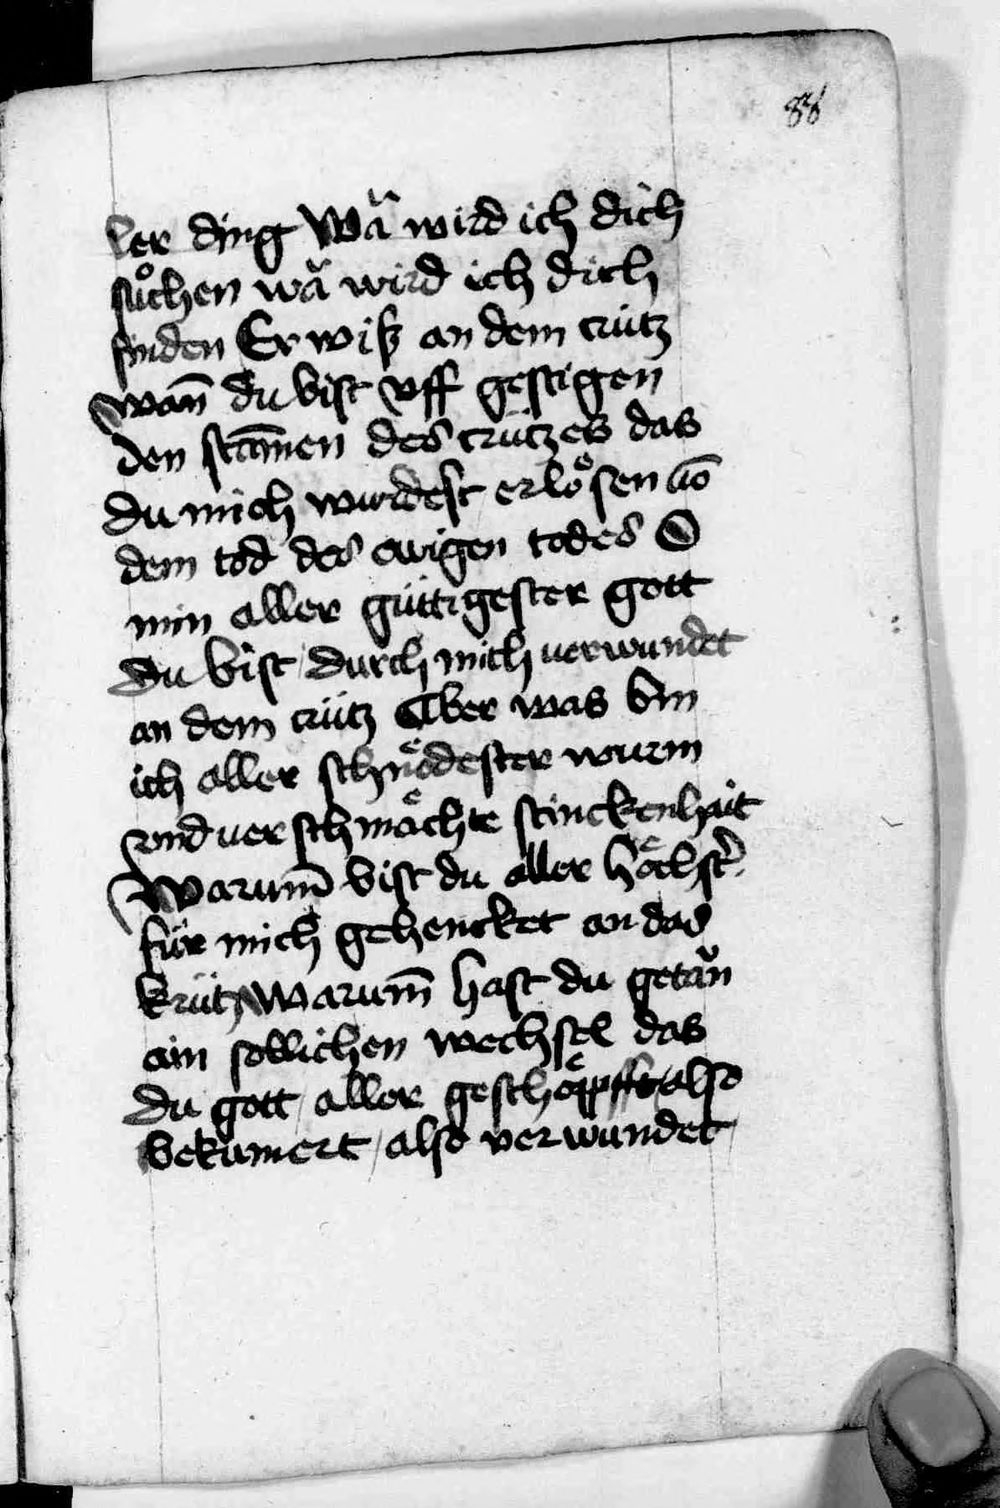 88
ler ding Wă wird ich dich
sůchen wă wird ich dich
finden Er wiß an dem crütz
wan̄ du bist vff gestigen
den stam̄en des crützes das
du mich wurdest erlo̊sen vo̅
dem tod des ewigen todes O
min aller güttigester gott
du bist durch mich uerwundet
an dem crütz Aber was bin
ich aller schnoͤdester wurm
vnd uerschmaͤchte stinckenhait
Warum̄ bist du aller hoͤchst᷑
für mich gehencket an das
krütz Warum̄ hast du getăn
ain sollichen wechsel das
du gott / aller geschoͤpfft / also
bekümert / also verwundet